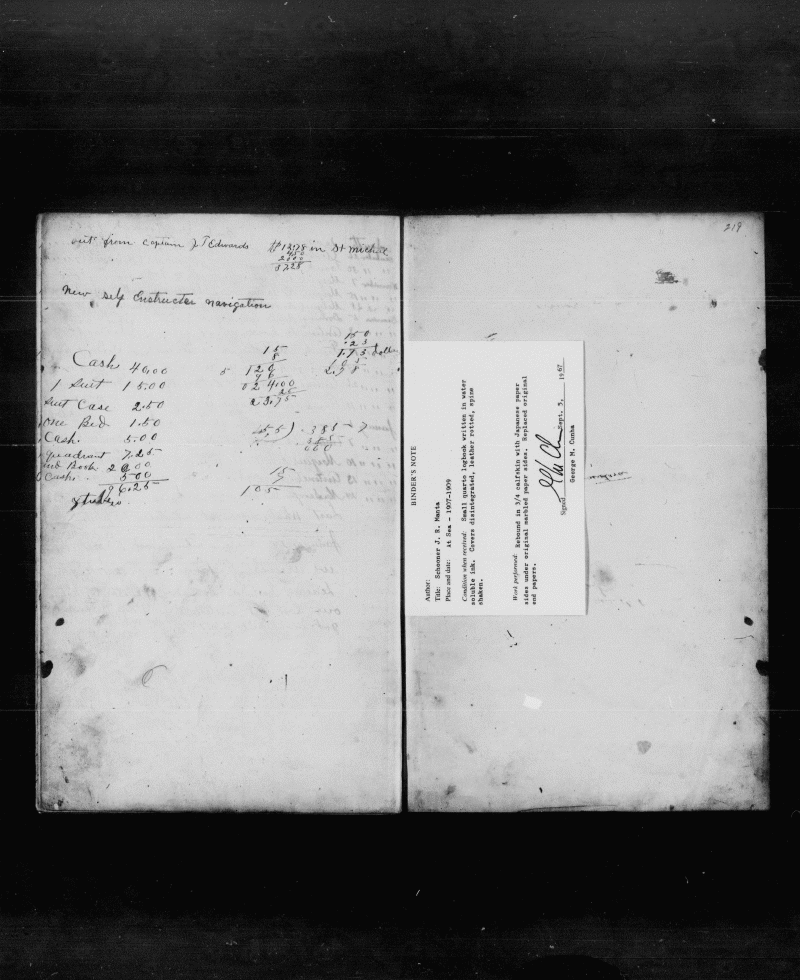 out from captain J T Edwards $12.78 in St Michael
4.50
20.00
37.28
New self Instructor navigation
Cash 40.00
1 Suit 15.00
Suit Case 2.50
one Bed 1.50
Cash. 5.00
quadrant 7.25
and Book 20.00
Cash. 5.00
96.25
15
8
5 120
24.00
23.75
1.50
.23
1.73 dollar
2.78
15
7
105
219
BINDER'S NOTE
Author:
Title: Schooner J. R. Manta
Place and date: At Sea - 1907-1909
Condition when received: Small quarto logbook written in water
soluble ink. Covers disintegrated, leather rotted, spine
shaken.
Work performed: Rebound in 3/4 calfskin with Japanese paper
sides under original marbled paper sides. Replaced original
end papers.
Signed Sept. 5, 1967
George M. Cunha